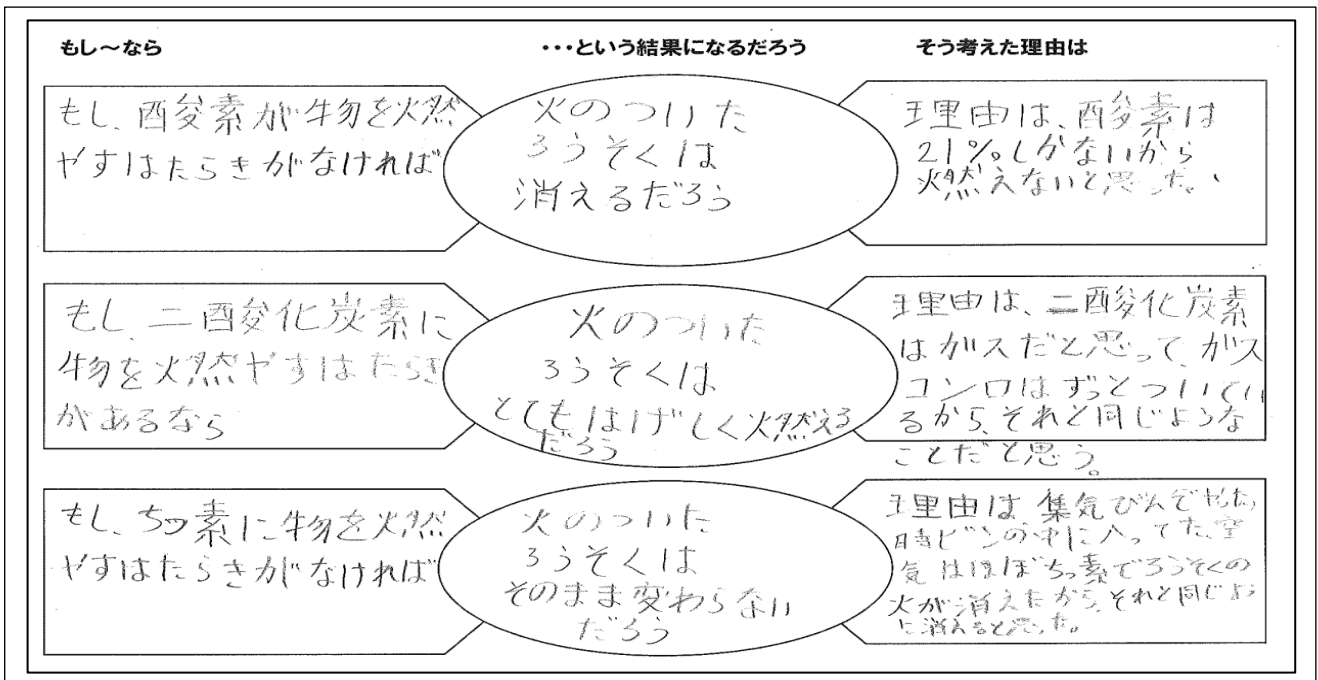 もし～なら
・・・という結果になるだろう
そう考えた理由は
もし、酸素が物を燃
やすはたらきがなければ
火のついた
ろうそくは
消えるだろう
理由は、酸素は
21%しかないから
燃えないと思った。
もし 二酸化炭素に
物を燃やすはたらき
があるなら
火のついた
ろうそくは
とてもはげしく燃える
だろう
理由は、二酸化炭素
はガスだと思って、ガス
コンロはずっとついてい
るから、それと同じような
ことだと思う。
もし、ちっ素に物を燃
やすはたらきがなければ
火のついた
ろうそくは
そのまま変わらない
だろう
理由は 集気びんで
時ビンの中に入ってた、空
気はほぼちっ素でろうそくの
火が消えたから、それと同じよう
に消えると思った。